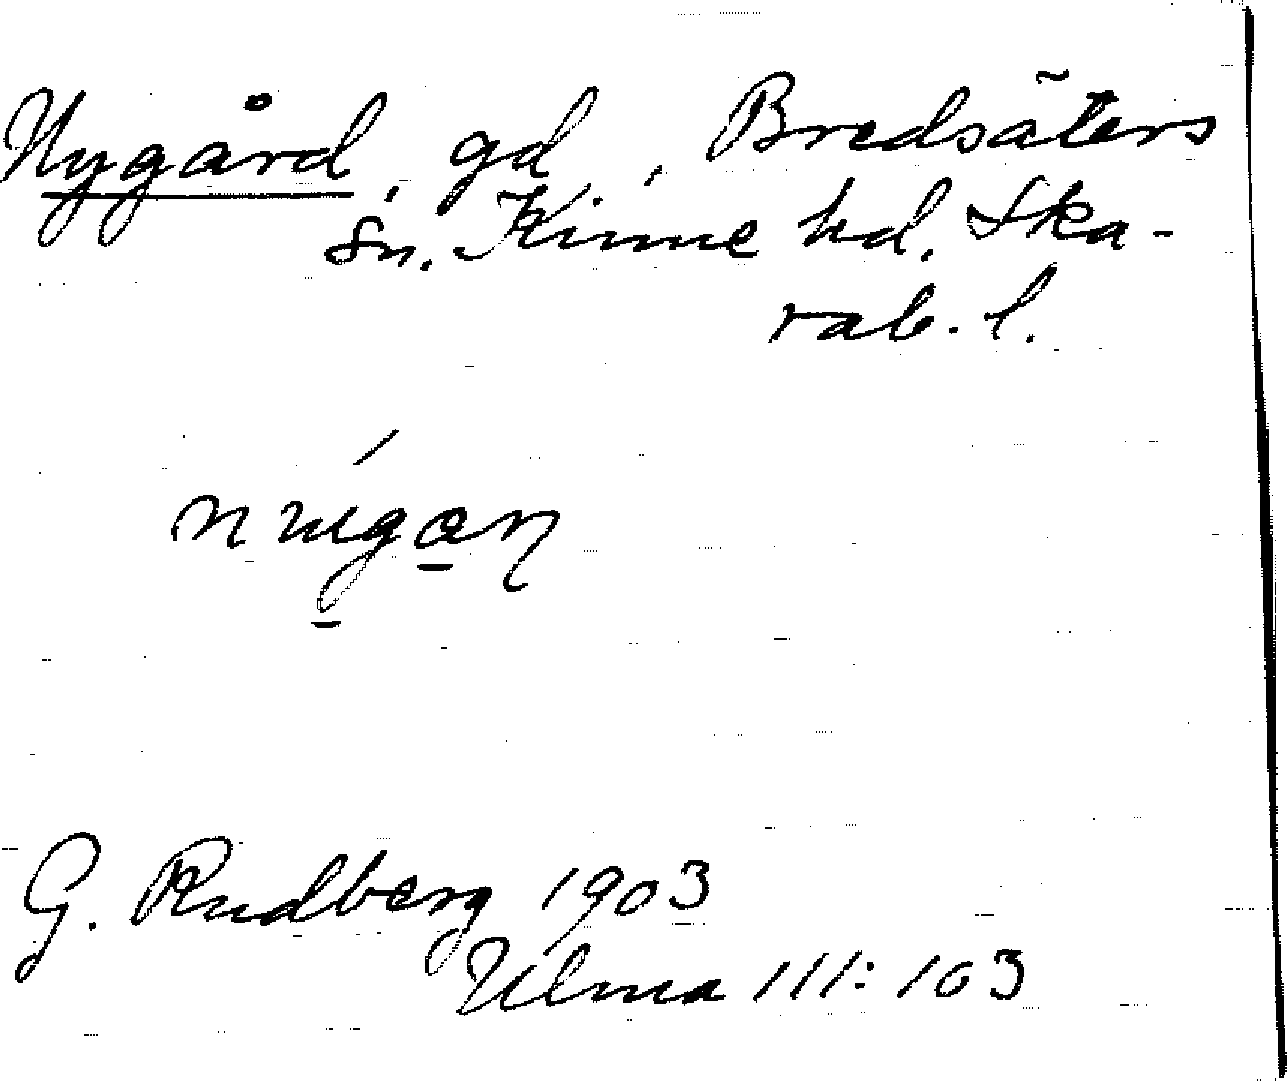 Nygård, gd, Bredsäters
sn. Kinne hd. Ska-
rab. l.
G. Rudberg 1903
Ulma 111: 103